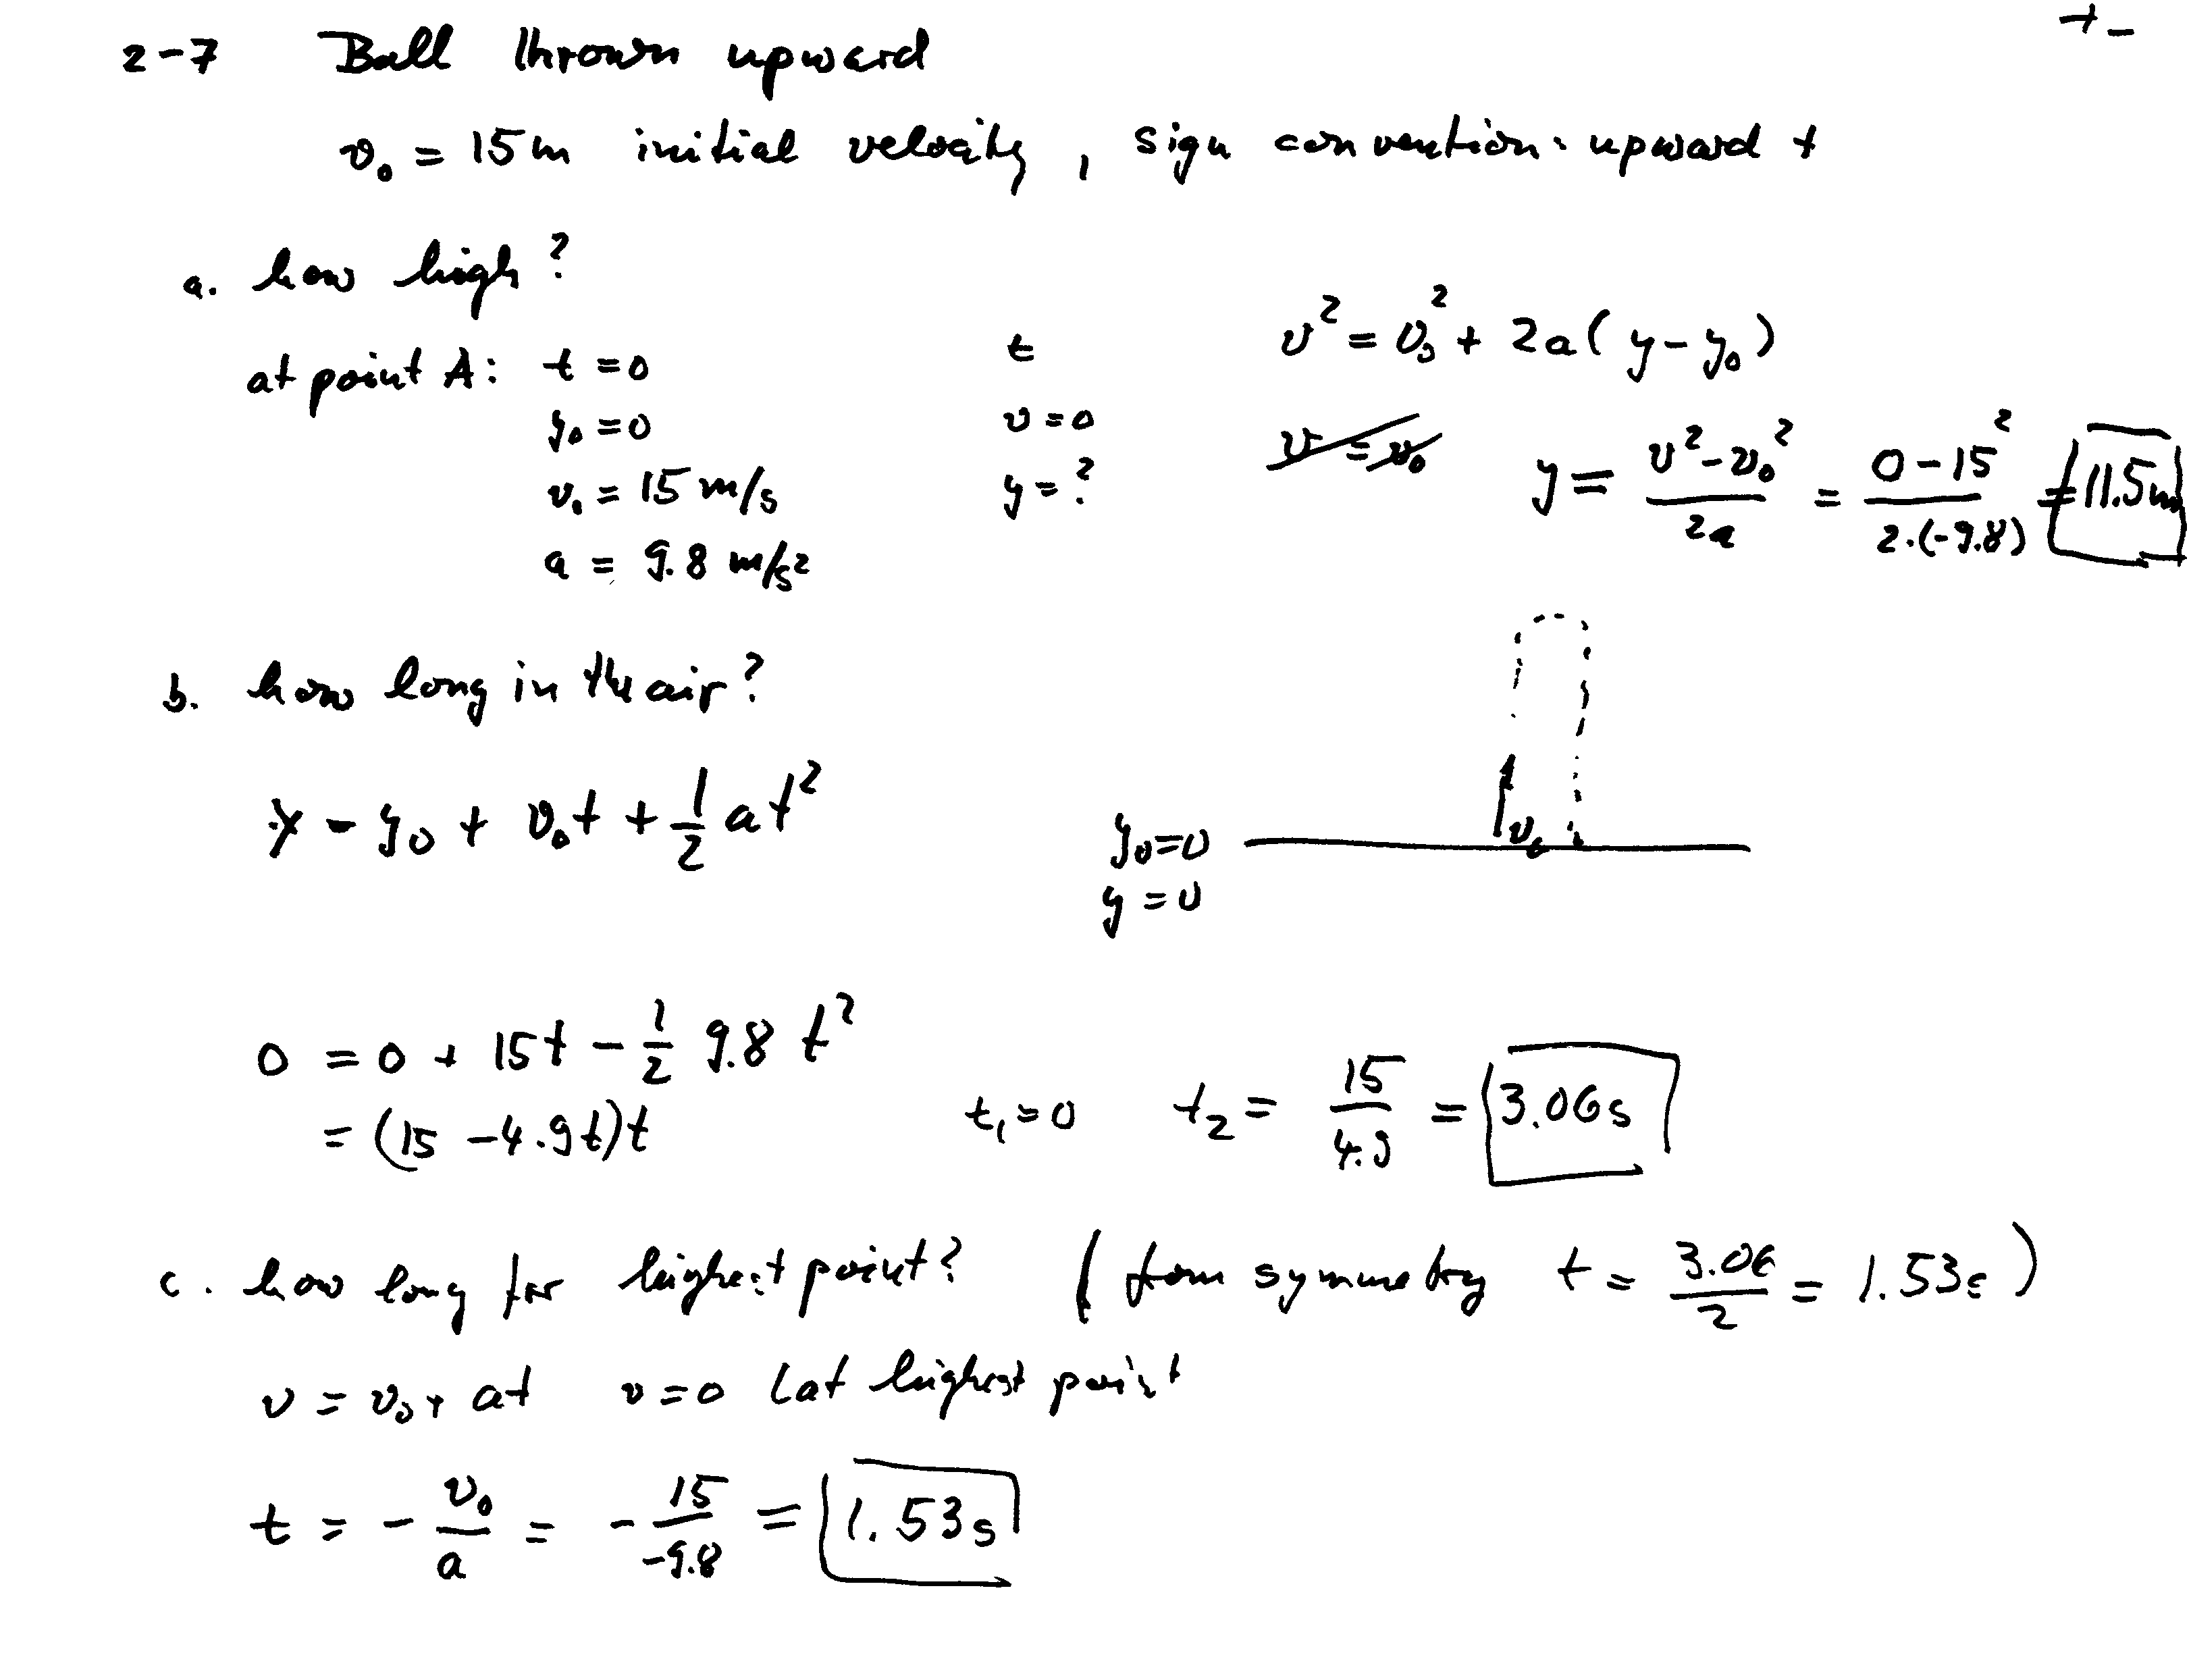 +-
2-7 Ball thrown upward
v₀ = 15m initial velocity, sign convention: upward +
a. how high?
at point A: t = 0
y₀ = 0
v₀ = 15 m/s
a = 9.8 m/s²
t
v = 0
y = ?
v² = v₀² + 2a(y - y₀)
v = v₀
y = (v² - v₀²)/2a = (0 - 15²)/2·(-9.8) = 11.5m
b. how long in the air?
y = y₀ + v₀t + 1/2 at²
v₀
y₀=0
y = 0
0 = 0 + 15t - 1/2 9.8 t²
= (15 - 4.9t)t
t₁ = 0 t₂ = 15/4.9 = 3.06s
c. how long for highest point? (from symmetry t = 3.06/2 = 1.53s)
v = v₀ + at v = 0 (at highest point
t = - v₀/a = - 15/-9.8 = 1.53s